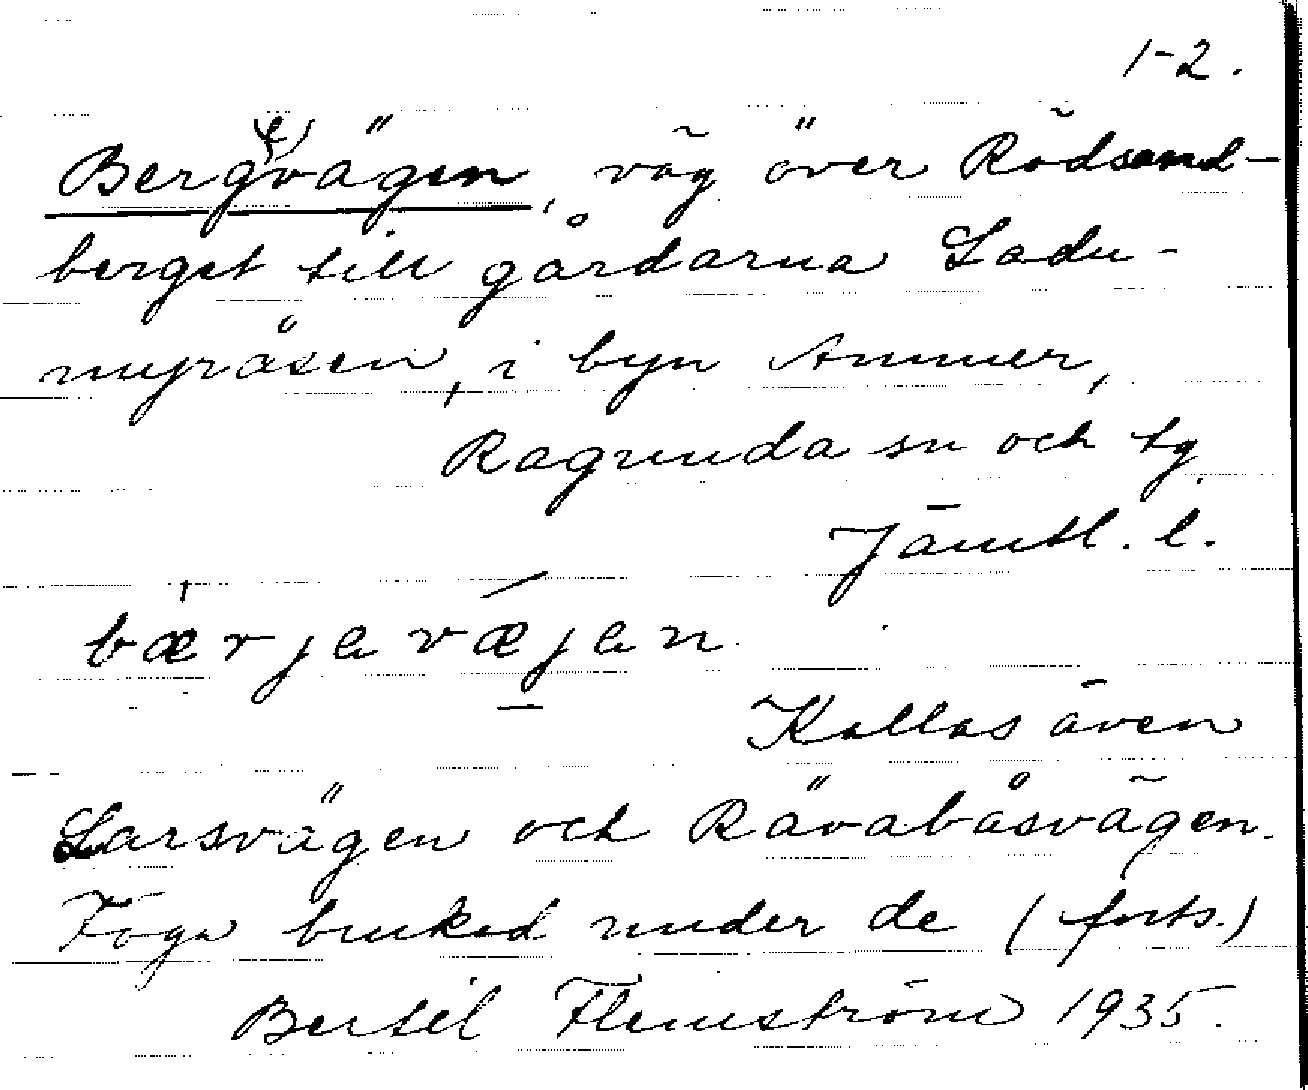 1-2.
Berg(e)vägen, väg över Rödsand-
berget till gårdarna Ladu-
myråsen, i byn Ammer,
Ragunda sn och tg
Jämtl. l.
bærjavæjan.
Kallas även
Larsvägen och Rävabåsvägen.
Föga brukad under de (forts.)
Bertil Flemström 1935.